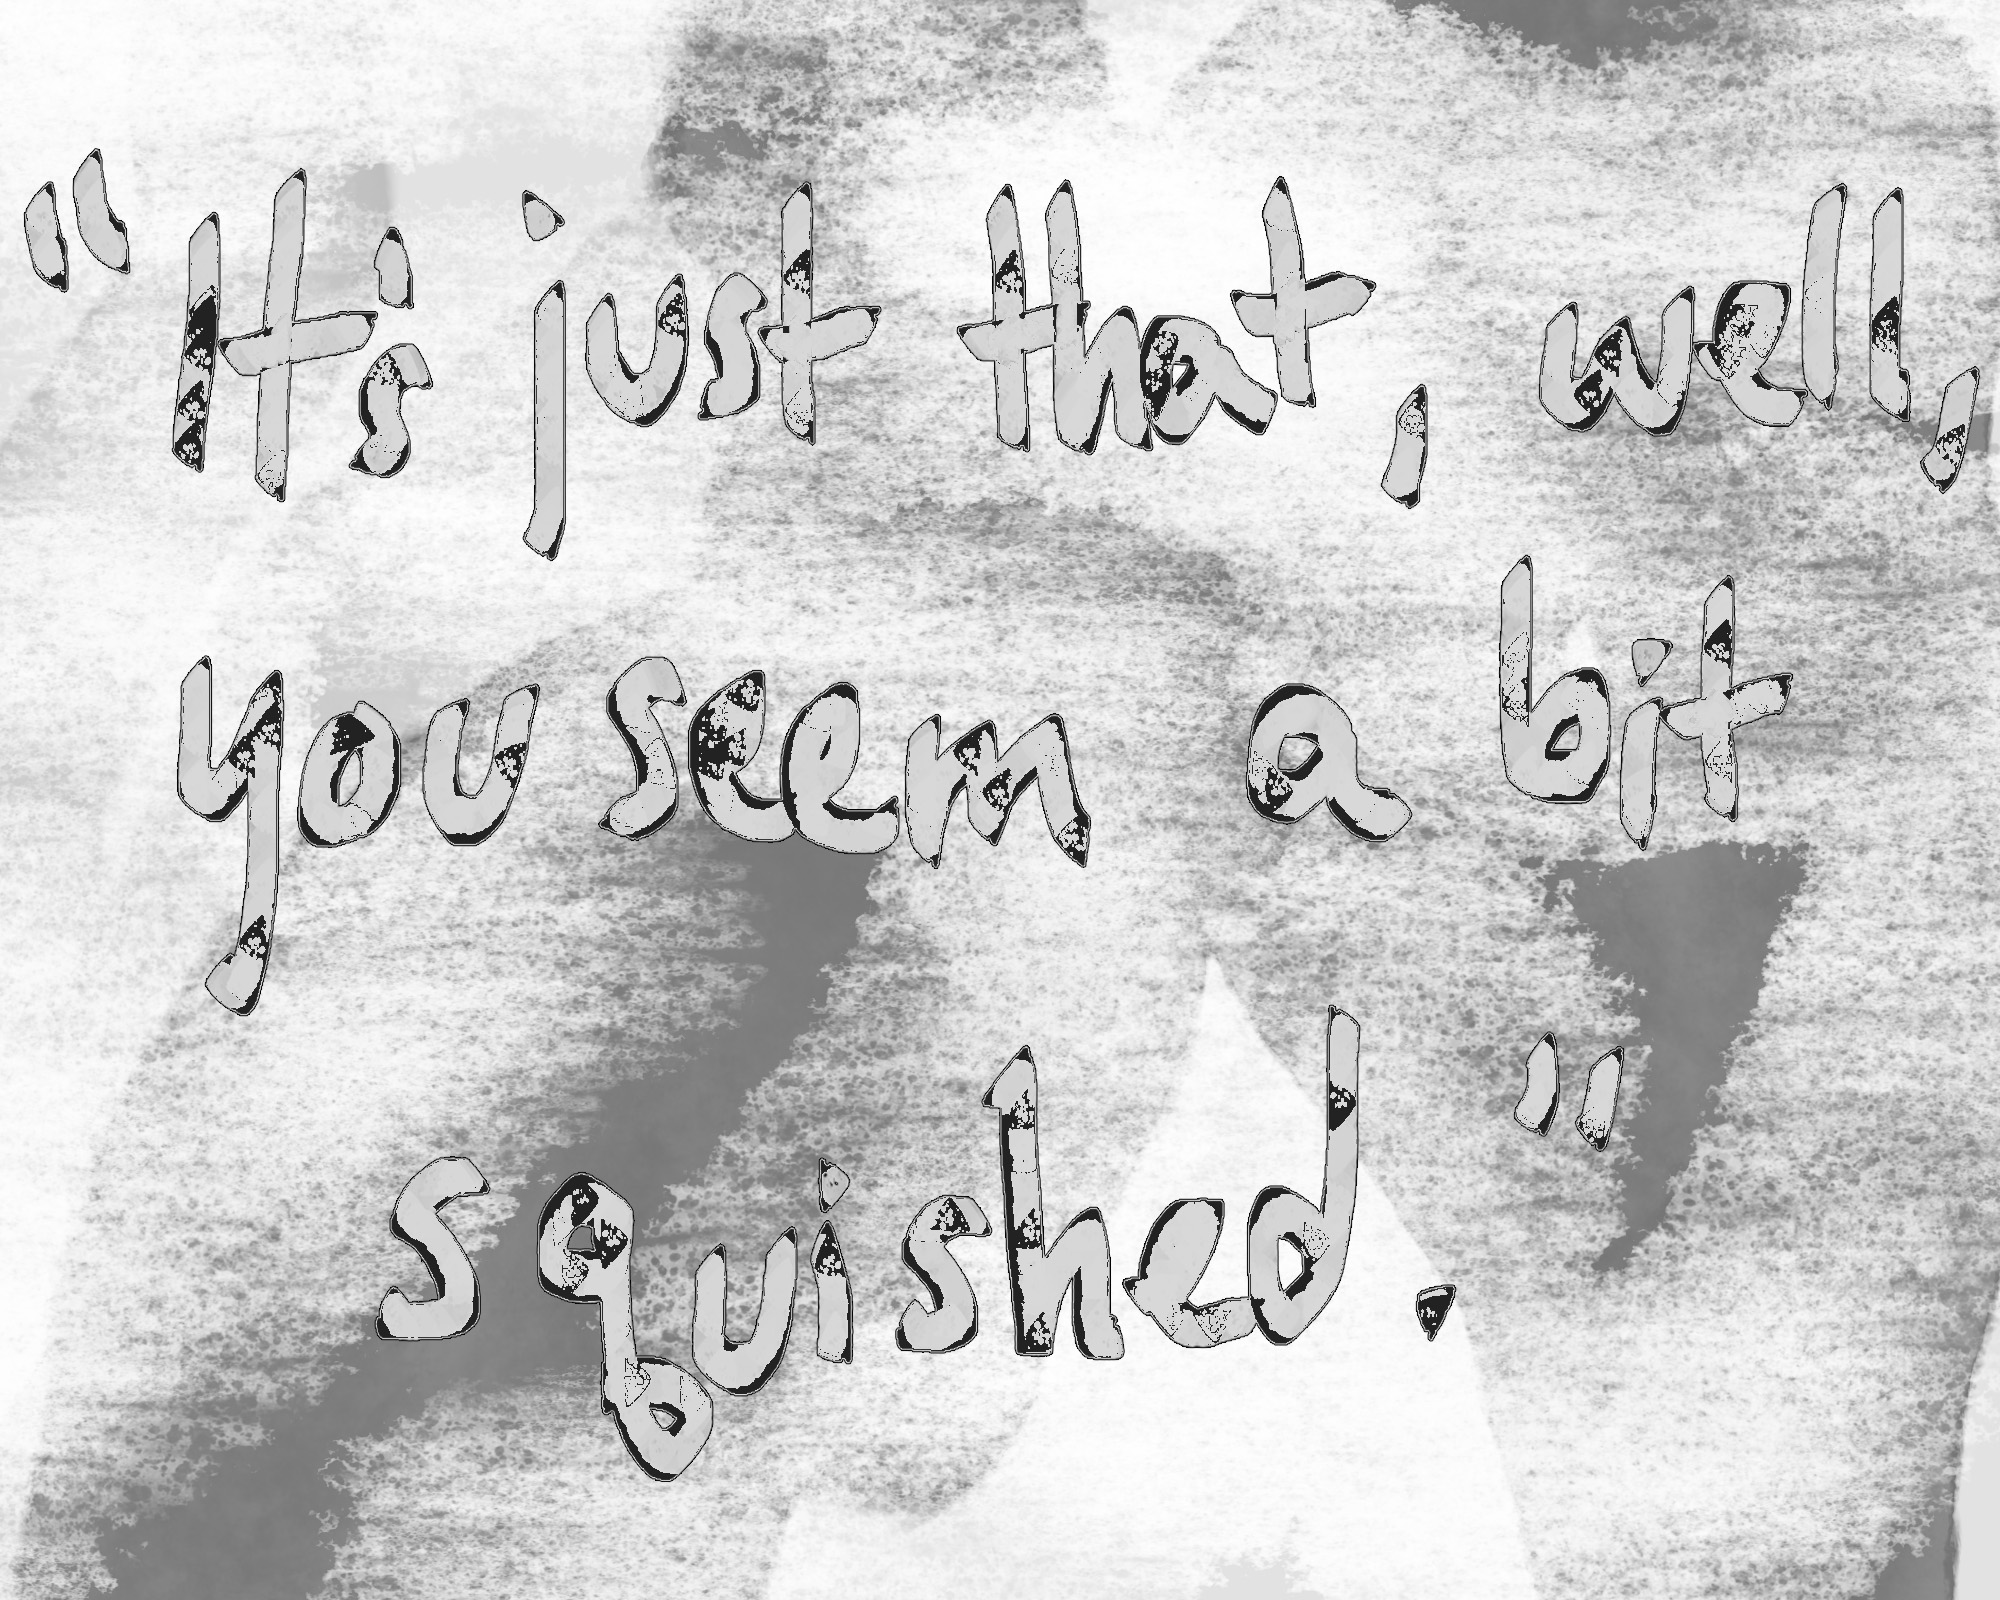 "It's just that, well,
you seem a bit
squished."